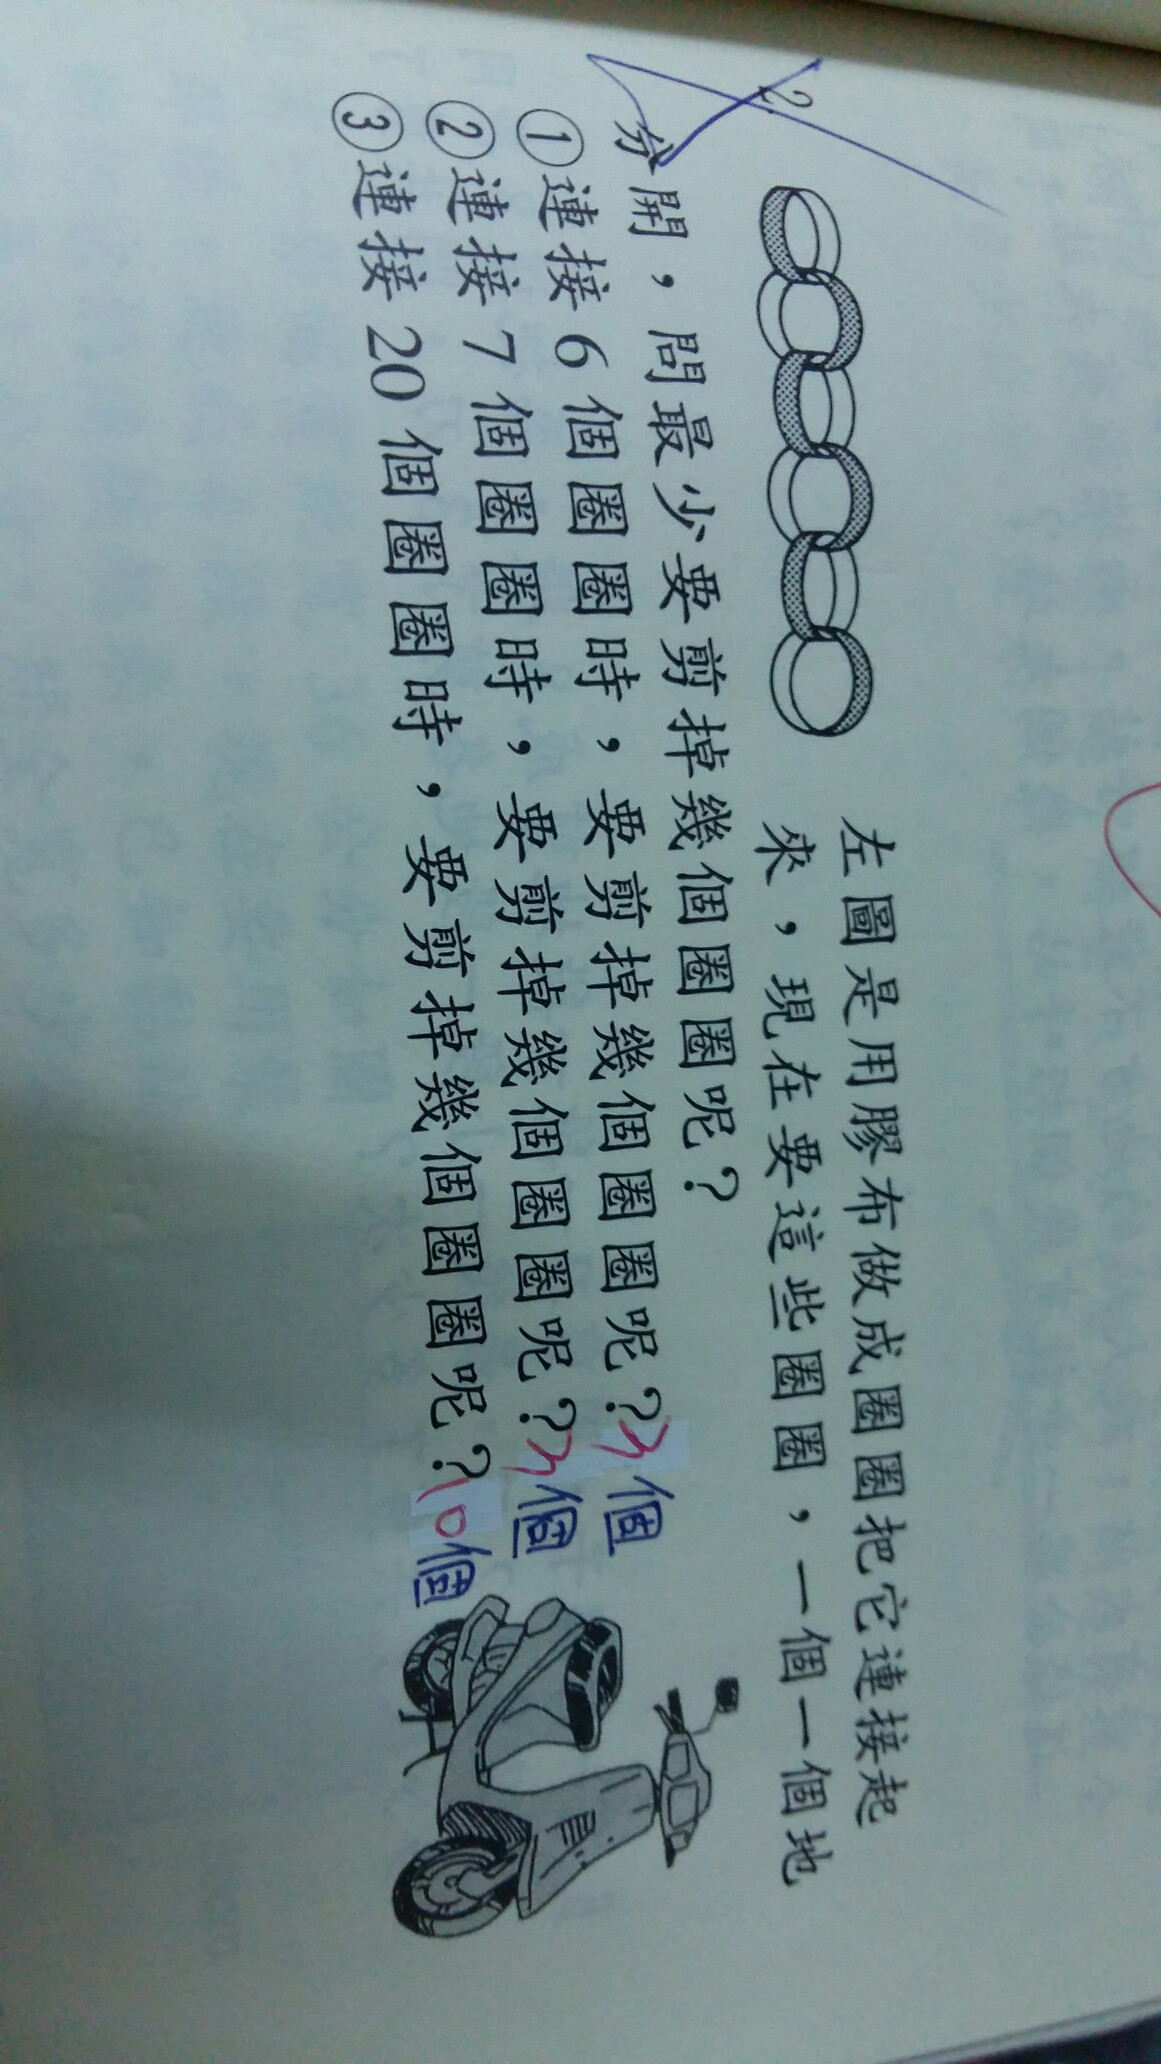 2.
左圖是用膠布做成圈圈把它連接起
來，現在要這些圈圈，一個一個地
分開，問最少要剪掉幾個圈圈呢？
①連接6個圈圈時，要剪掉幾個圈圈呢？3個
②連接7個圈圈時，要剪掉幾個圈圈呢？3個
③連接20個圈圈時，要剪掉幾個圈圈呢？10個